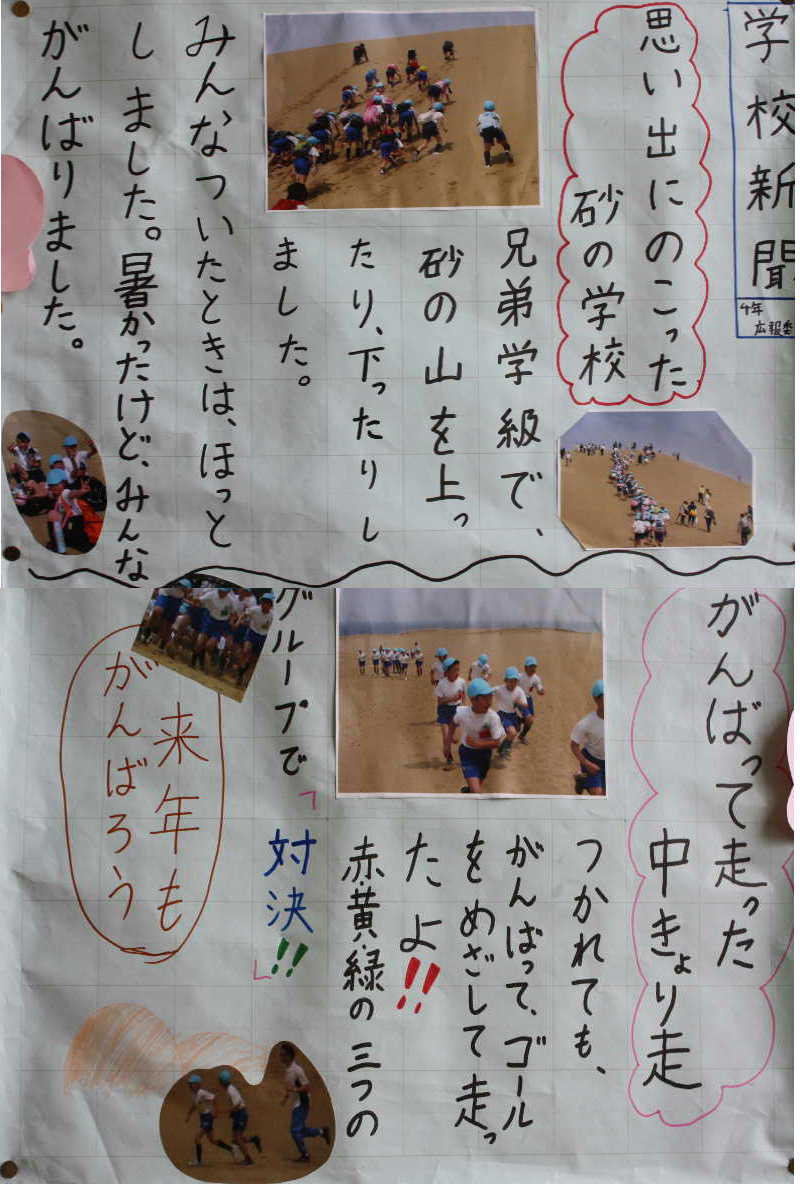 学校新聞
4年
広報委
思い出にのこった
砂の学校
兄弟学級で、
砂の山を上っ
たり、下ったりし
ました。
みんなついたときは、ほっと
しました。暑かったけど、みんな
がんばりました。
がんばって走った
中きょり走
つかれても、
がんばって、ゴール
をめざして走っ
たよ!!
赤・黄・緑の三つの
グループで
「対決!!」
来年も
がんばろう